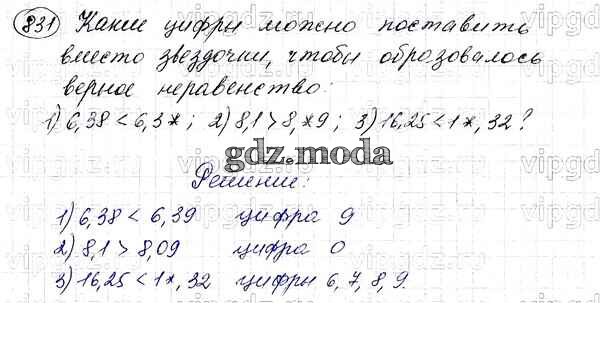 831 Какие цифры можно поставить
вместо звездочки, чтобы образовалось
верное неравенство:
1) 6,38 < 6,3*; 2) 8,1 > 8,*9; 3) 16,25 < 1*,32?
gdz.moda
Решение:
1) 6,38 < 6,39 цифра 9
2) 8,1 > 8,09 цифра 0
3) 16,25 < 1*,32 цифры 6, 7, 8, 9.